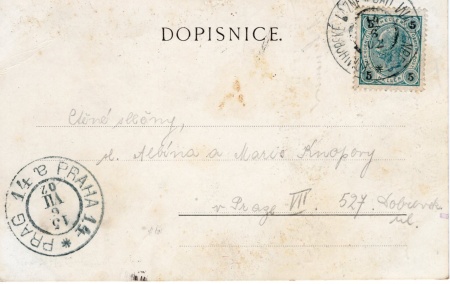 DOPISNICE.
5 5
Ctěné slečny,
sl. Albína a Marie Knapovy
v Praze VII. 527.
PRAG 14 B PRAHA 14
15
VII
02